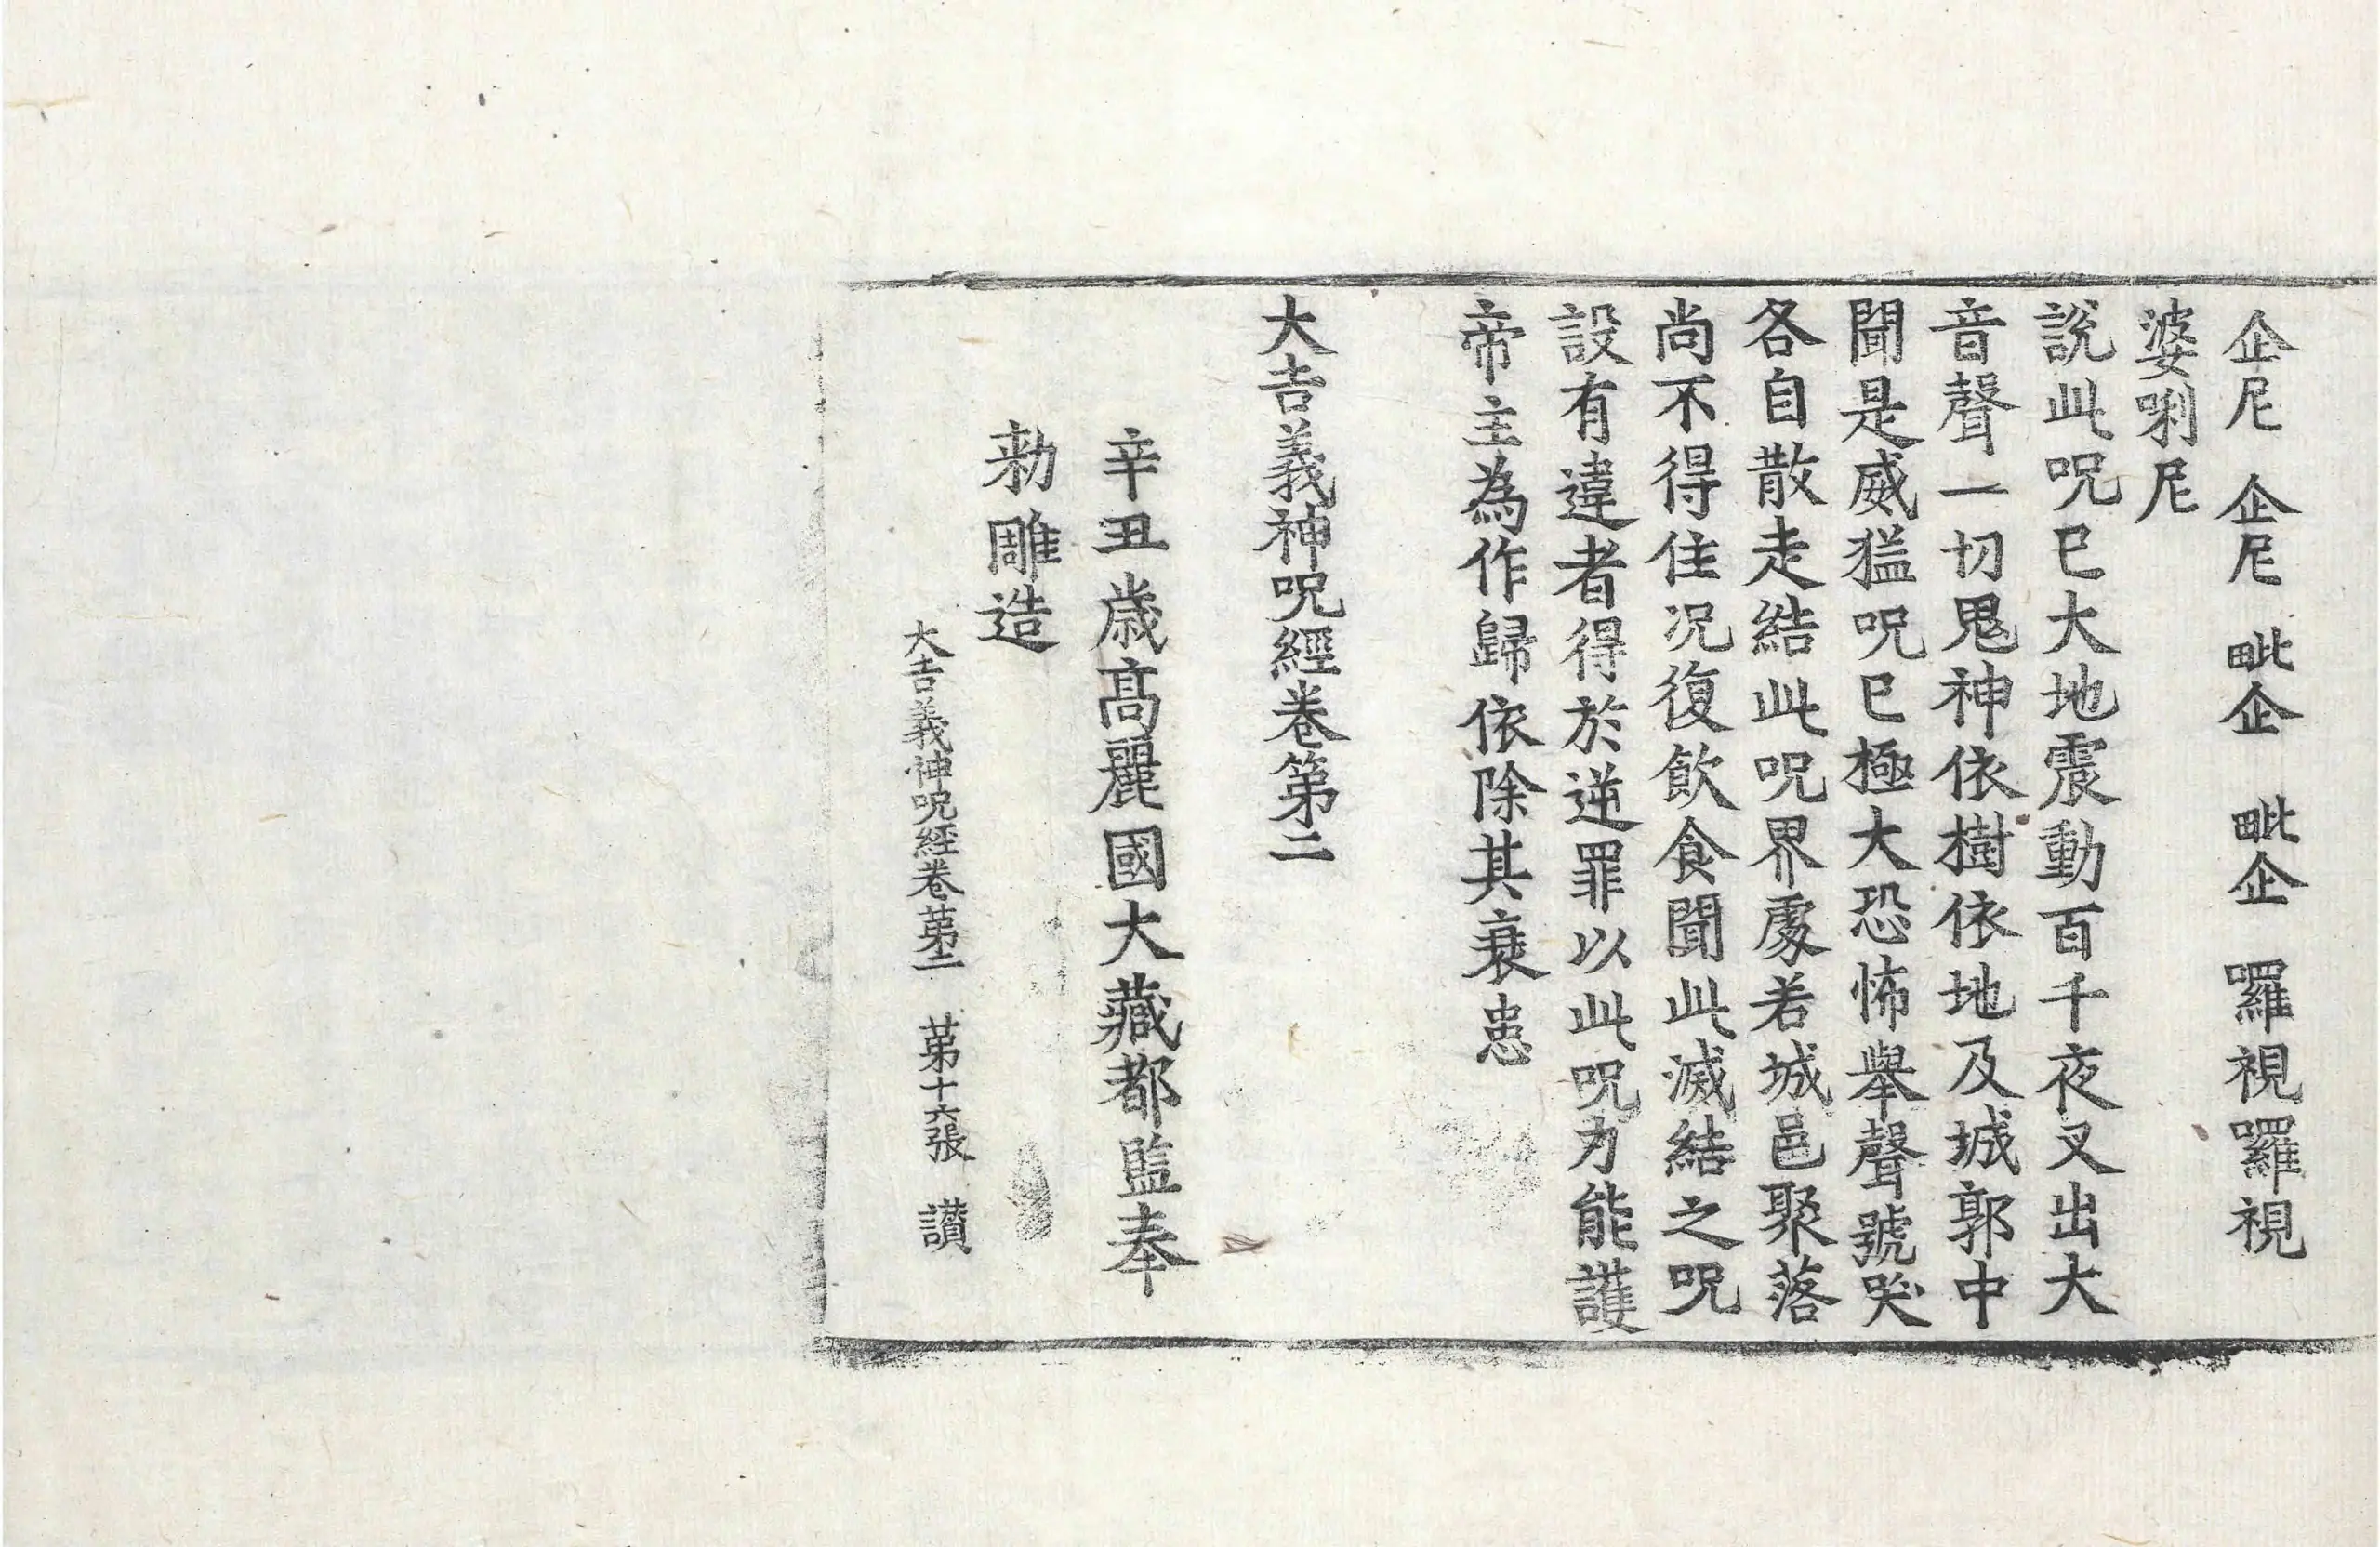 企尼 企尼 毗企 毗企 囉視囉視
婆唎尼
說此呪已大地震動百千夜叉出大
音聲一切鬼神依樹依地及城郭中
聞是威猛呪已極大恐怖舉聲號哭
各自散走結此呪界處若城邑聚落
尚不得住況復飲食聞此滅結之呪
設有違者得於逆罪以此呪力能護
帝主為作歸依除其衰患
大吉義神呪經卷第二
辛丑歲高麗國大藏都監奉
勑雕造
大吉義神呪經卷第二 第十六張 讃